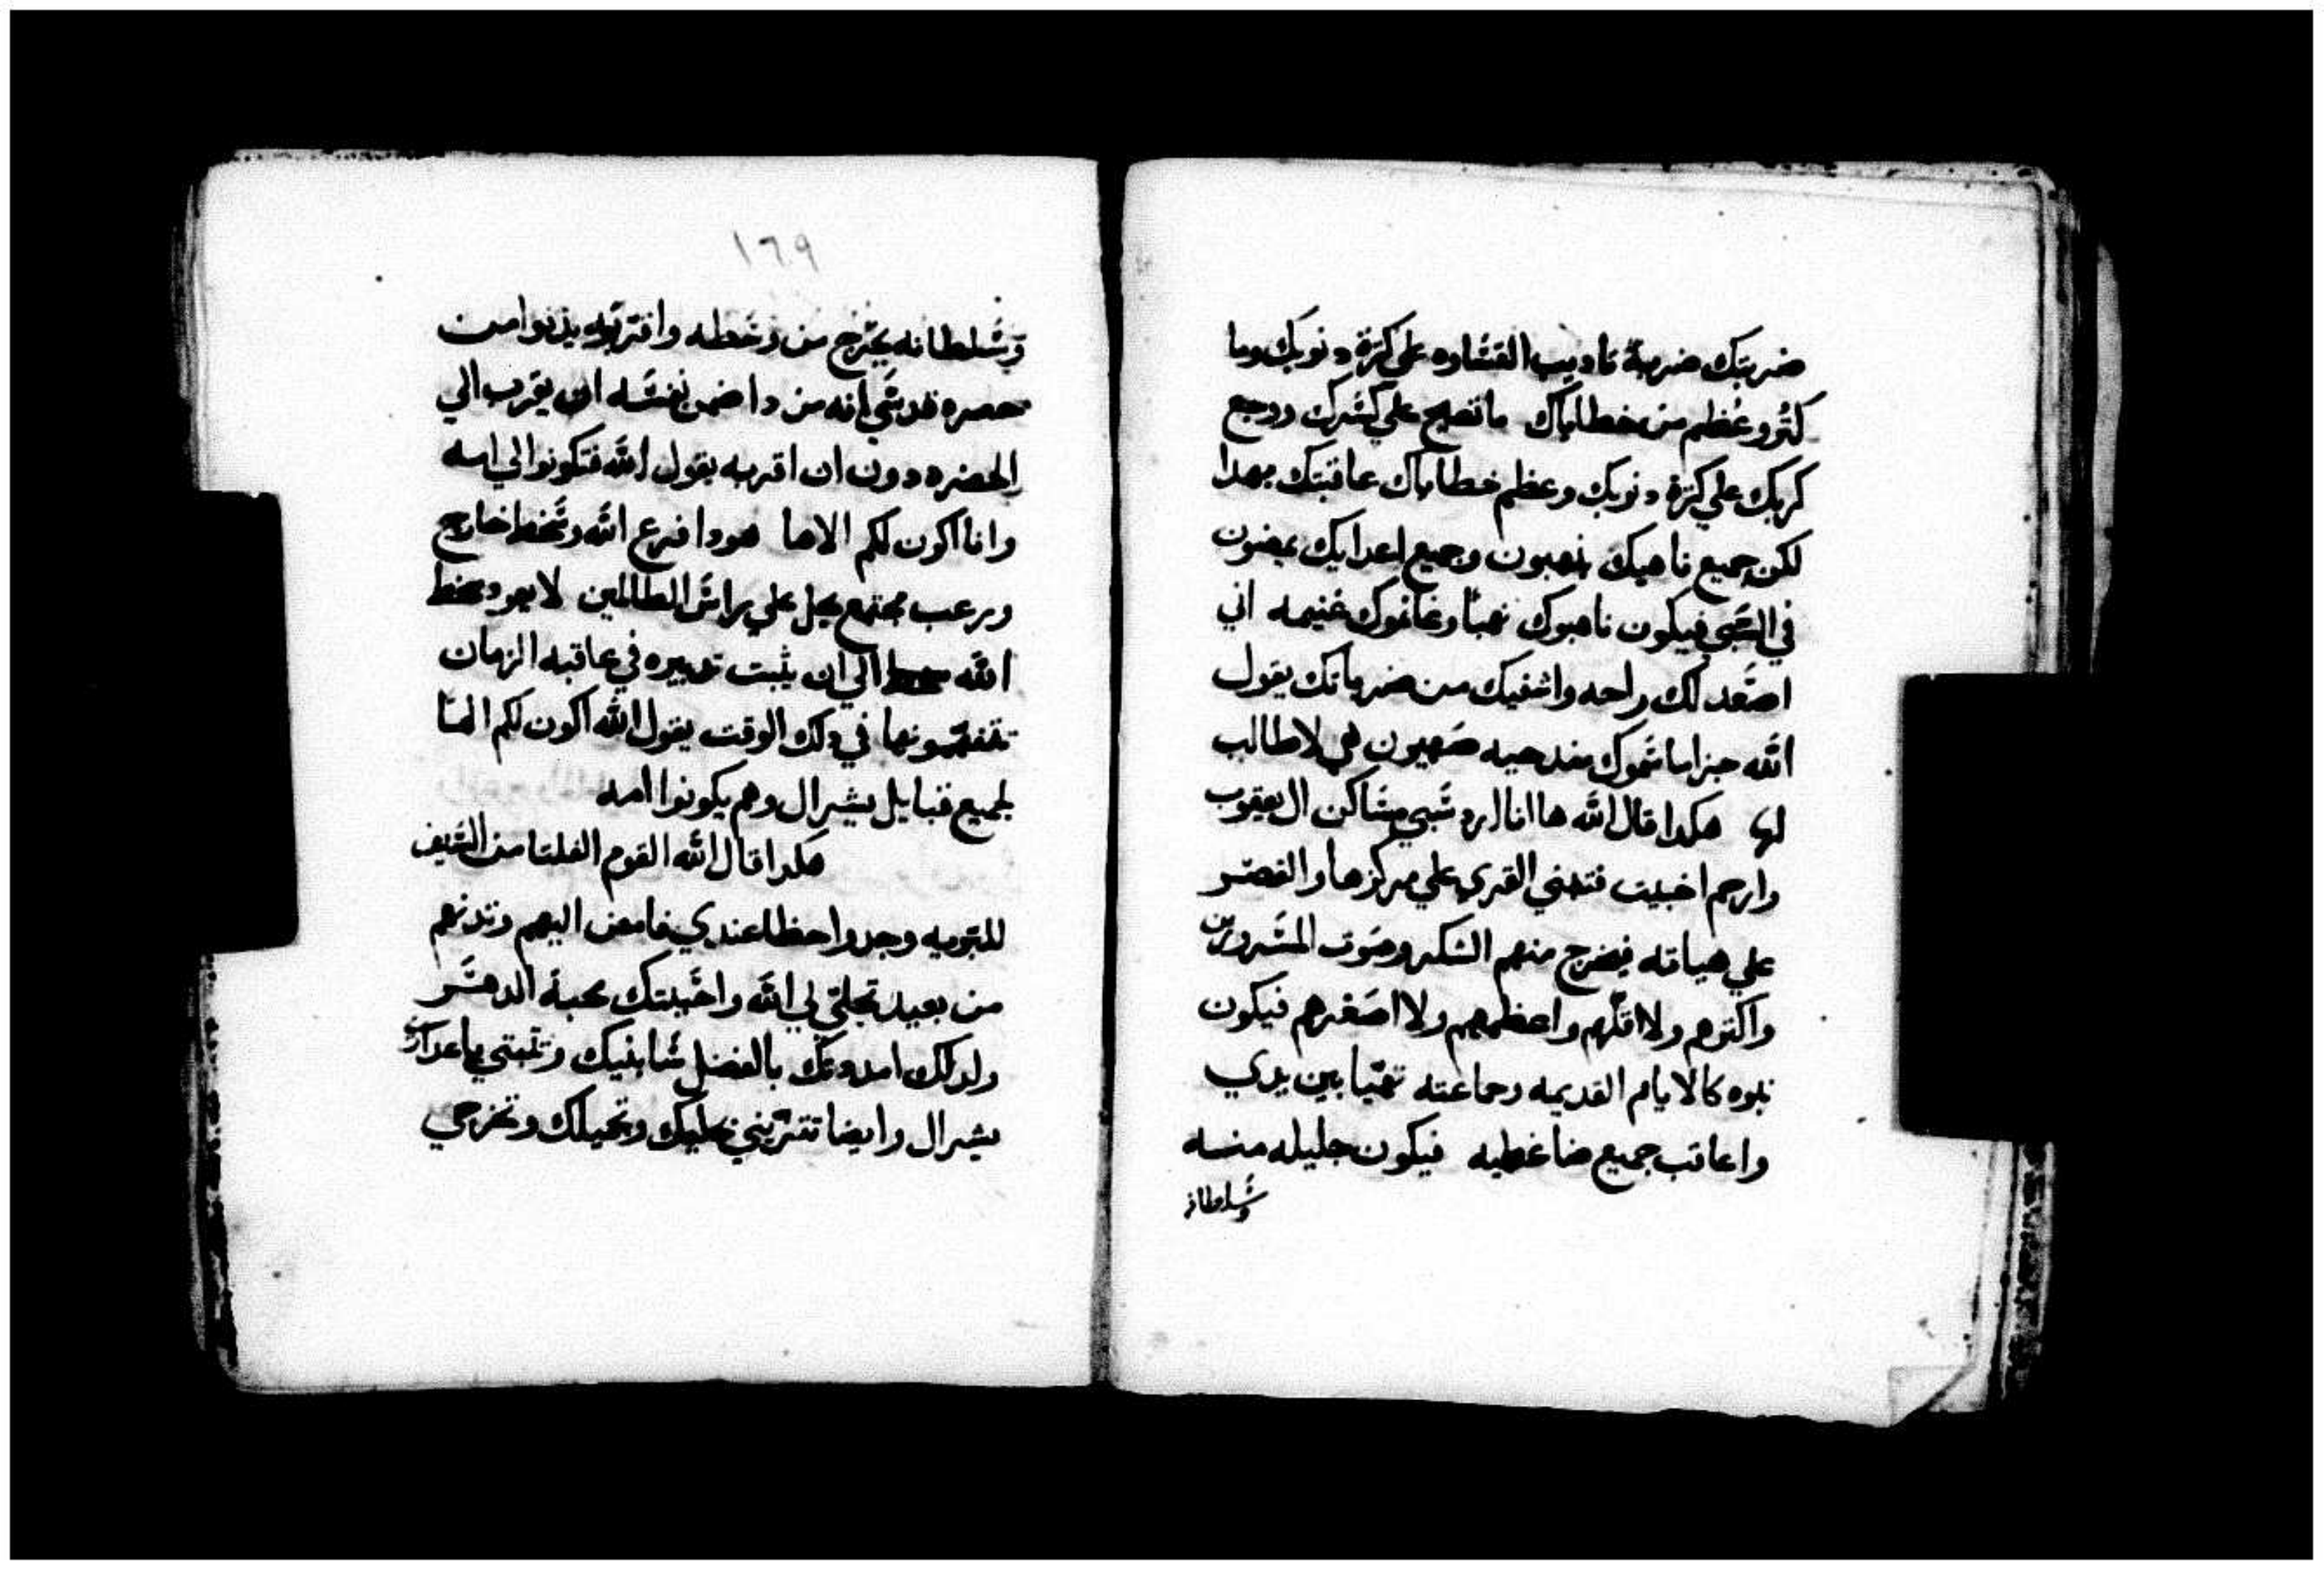 ضربتك ضربة تاديب القساوه علي كترة دنوبك وما
كتر وعظم من خطاياك ماتصلح علي كسرك ووجع
كربك علي كترة دنوبك وعظم خطاياك عاقبتك بهدا
لكن جميع ناهبيك ينهبون وجميع اعدايك يمضون
في السبي فيكون ناهبوك نهبا وغانموك غنيمه اني
اصعد لك راحه واشفيك من ضرباتك يقول
الله جزا ما سموك صهيون هي لا طالب
لها هكدا قال الله ها انا ارد سبي مساكن ال يعقوب
وارحم اخبيت فتبني القري علي مركزها والقصر
علي هياته فيخرج منهم الشكر وصوت المسرورين
واكترهم ولا اقلهم واعظمهم ولا اصغرهم فيكون
بنوه كالايام القديمه وجماعته تهيا بين يدي
واعاقب جميع ضاغطيه فيكون جليله منه
وسلطانه
١٦٩
وسلطانه يخرج من وسطه واقتربه يدنوا من
قدسي انه من دا ضمن نفسه ان يقرب الي
الحضره دون ان اقربه يقول الله فتكونوا لي امه
وانا اكون لكم الاها هودا فرع الله وسخط خارج
ورعب مجتمع يحل علي راس الظالمين لا يعود سخط
الله الي ان يثبت تدبيره في عاقبه الزمان
تتفهمونها في دلك الوقت يقول الله اكون لكم الها
لجميع قبايل يشرال وهم يكونوا امه
هكدا قال الله القوم الفلتا من السيف
للبتويه وجدوا حظا عندي فامض اليهم وتدنهم
من بعيد تجلي لي الله واحببتك محبة الدهر
ولدلك امددتك بالفضل سابنيك وتبتي يا عدرا
يشرال وايضا تتزيني بحليك وتحيلك وتخرجي